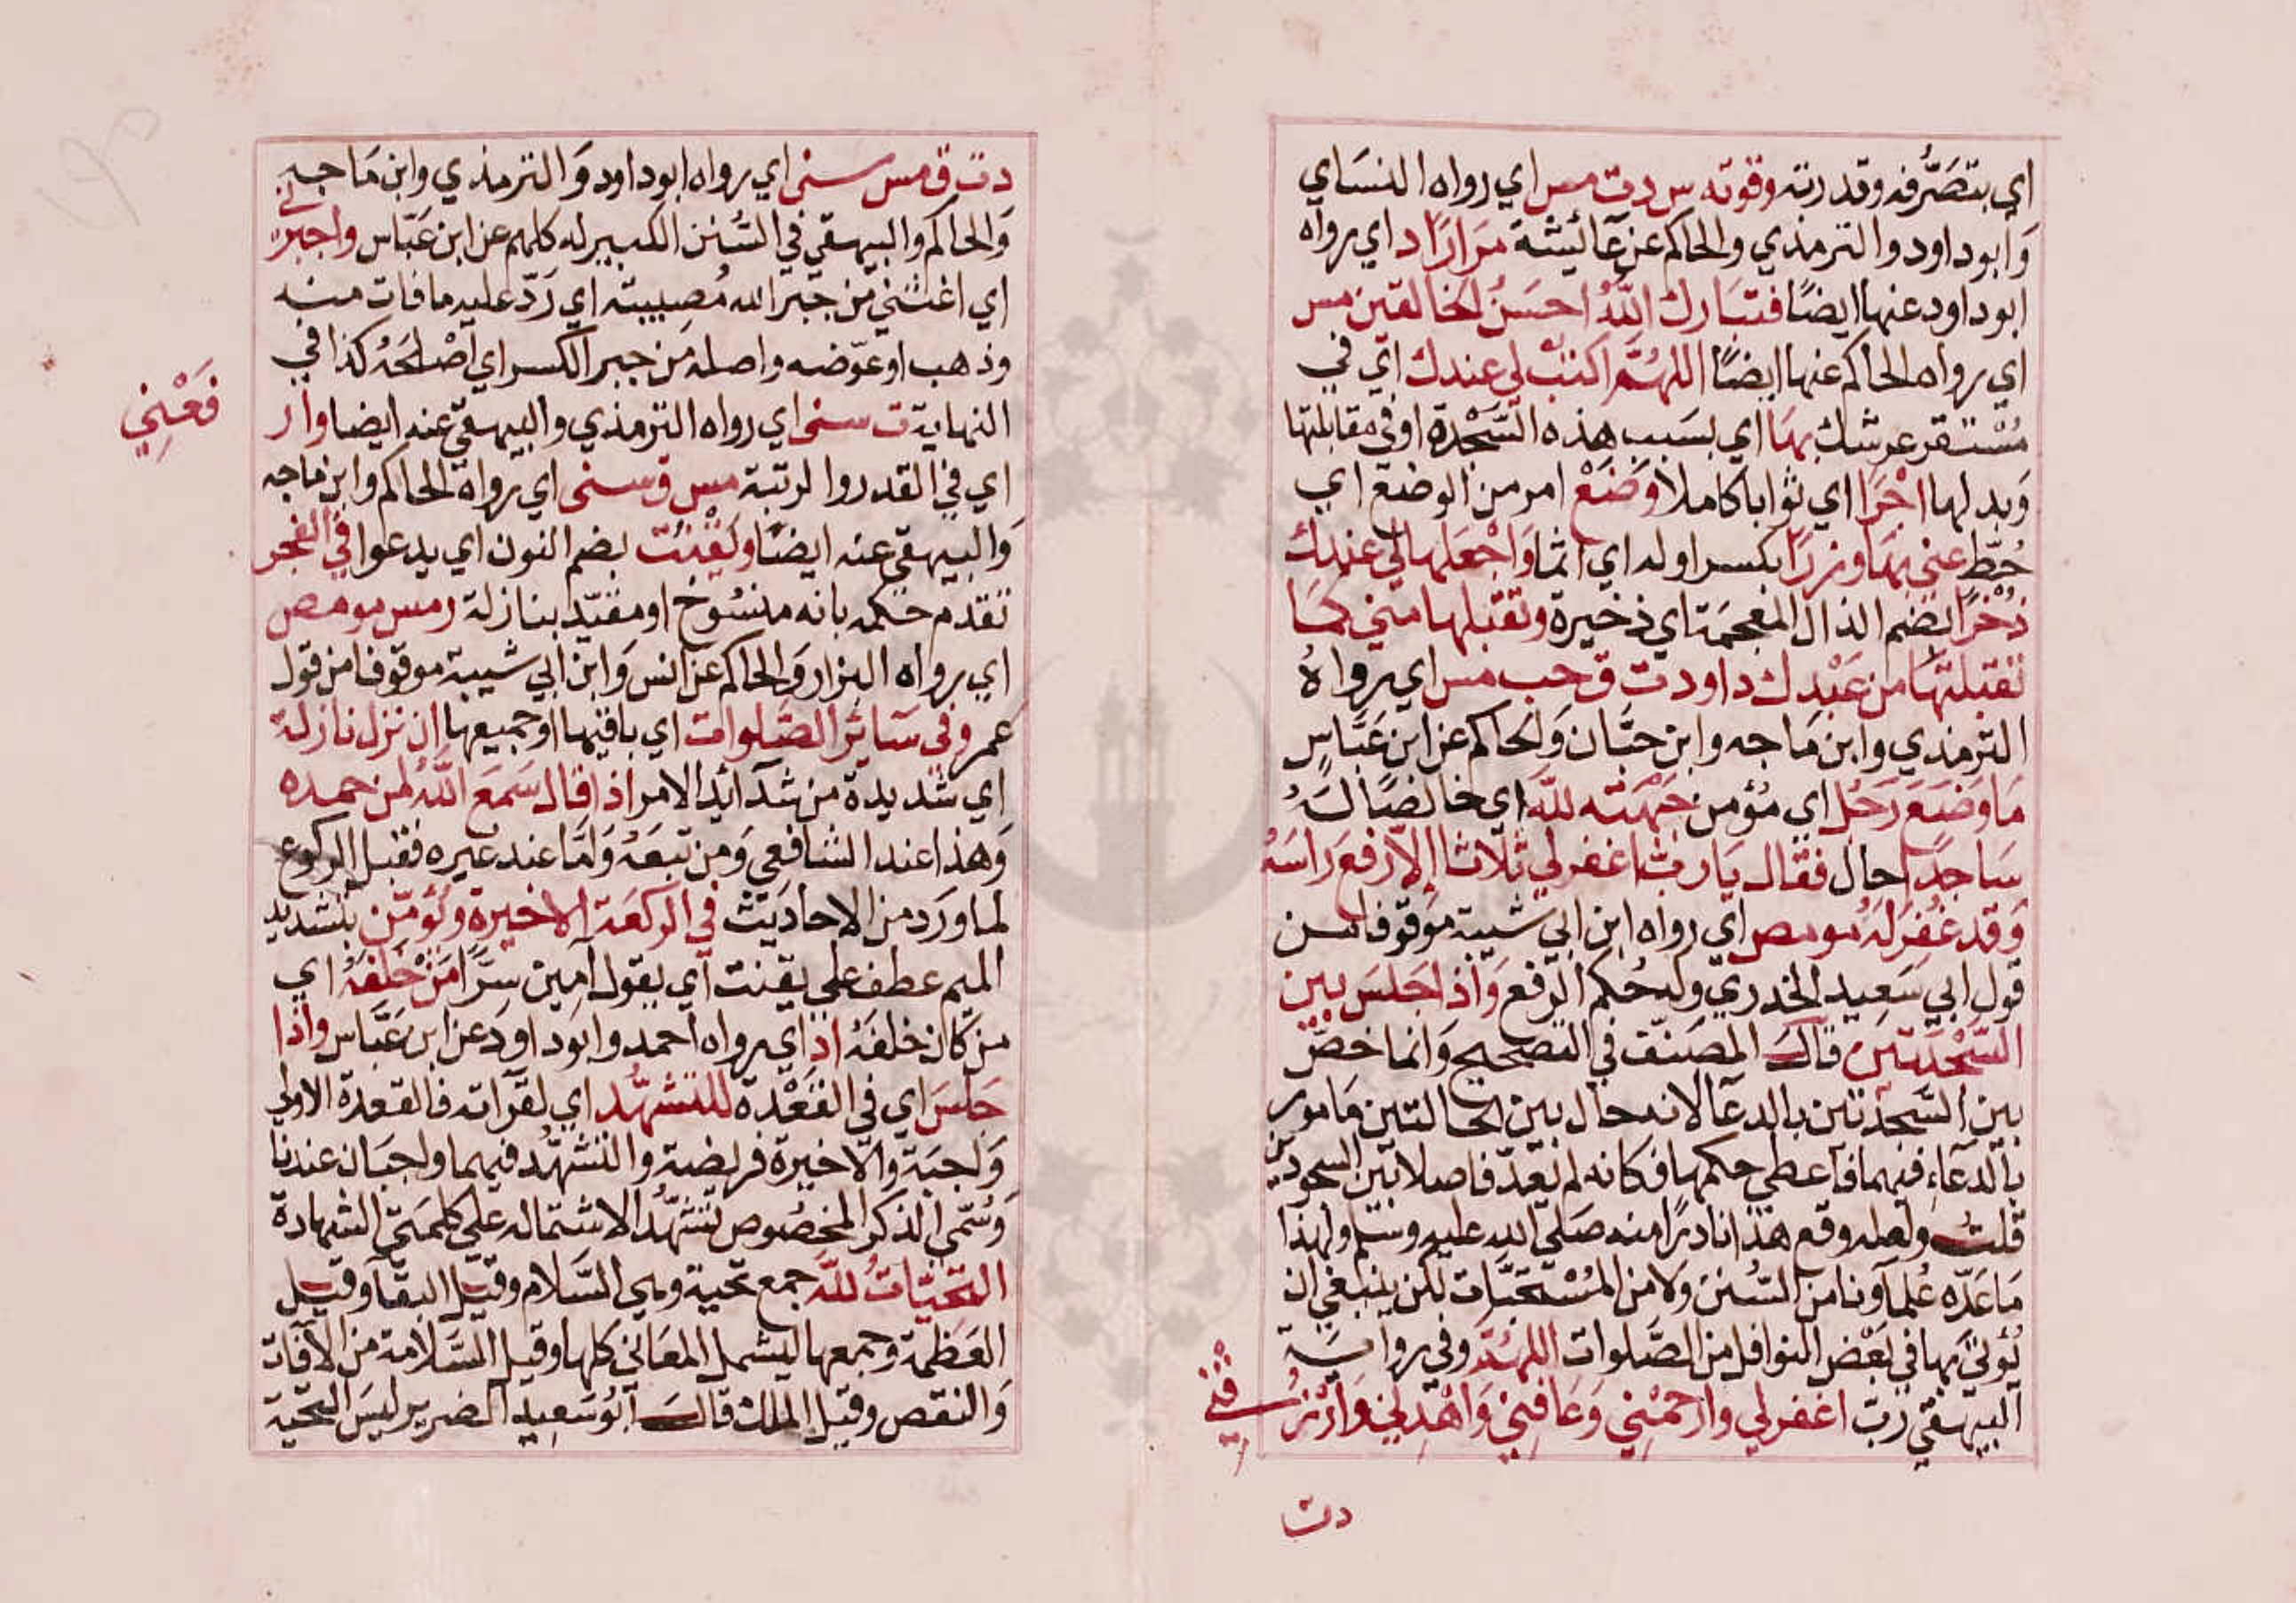 اي بتصرفه وقدرته وقوته س دت مس اي رواه النساي
وابو داود والترمذي والحاكم عن عائيشة مرارا د اي رواه
ابو داود عنها ايضا فتبارك الله احسن الخالقين مس
اي رواه الحاكم عنها ايضا اللهم اكتب لي عندك اي في
مستقر عرشك بها اي بسبب هذه السجدة او في مقابلتها
وبدلها اجرا اي ثوابا كاملا وضع امر من الوضع اي
حط عني بها وزرا بكسر اوله اي اثما واجعلها لي عندك
ذخرا بضم الذال المعجمة اي ذخيرة وتقبلها مني كما
تقبلتها من عبدك داود ت ق حب مس اي رواه
الترمذي وابن ماجه وابن حبان والحاكم عن ابن عباس
ما وضع رجل اي مؤمن جبهته لله اي خالصا له
ساجدا حال فقال يا رب اغفر لي ثلاثا الا رفع راسه
وقد غفر له مو مص اي رواه ابن ابي شيبة موقوفا من
قول ابي سعيد الخدري وله حكم الرفع واذا جلس بين
السجدتين قال المصنف في التصحيح وانما خص
بين السجدتين بالدعا لانه حال بين الحالتين مامور
بالدعاء فيهما فاعطي حكمها فكانه لم يعد فاصلا بين السجودين
قلت ولعله وقع هذا نادرا منه صلى الله عليه وسلم ولهذا
ما عده علماونا من السنن ولا من المستحبات لكن ينبغي ان
يؤتى بها في بعض النوافل من الصلوات اللهم د وفي رواية
البيهقي رب اغفر لي وارحمني وعافني واهدني وارزقني
دت
دت ق مس سنى اي رواه ابو داود والترمذي وابن ماجه
والحاكم والبيهقي في السنن الكبير له كلهم عن ابن عباس واجبرني
اي اغنني من جبر الله مصيبته اي رد عليه ما فات منه
وذهب او عوضه واصله من جبر الكسر اي اصلحه كذا في
النهاية ت سنى اي رواه الترمذي والبيهقي عنه ايضا وار
فعني
اي في القدر والرتبة مس ق سنى اي رواه الحاكم وابن ماجه
والبيهقي عنه ايضا ويقنت بضم النون اي يدعوا في الفجر
تقدم حكمه بانه منسوخ او مقيد بنازلة ر مس مو مص
اي رواه البزار والحاكم عن انس وابن ابي شيبة موقوفا من قول
عمر وفي سائر الصلوات اي باقيها او جميعها ان نزل نازلة
اي شديدة من شدآئد الامر اذا قال سمع الله لمن حمده
وهذا عند الشافعي ومن تبعه واما عند غيره فقبل الركوع
لما ورد من الاحاديث في الركعة الاخيرة ويؤمن بتشديد
الميم عطف على يقنت اي يقول آمين سرا من خلفه اي
من كان خلفه اد اي رواه احمد وابو داود عن ابن عباس واذا
جلس اي في القعدة للتشهد اي لقرآته فالقعدة الاولى
واجبة والاخيرة فريضة والتشهد فيهما واجبان عندنا
وسمي الذكر المخصوص تشهدا لاشتماله على كلمتي الشهادة
التحيات لله جمع تحية وهي السلام وقيل البقا وقيل
العظمة وجمعها ليشمل المعاني كلها وقيل السلامة من الآفات
والنقص وقيل الملك قال ابو سعيد الضرير ليس التحية